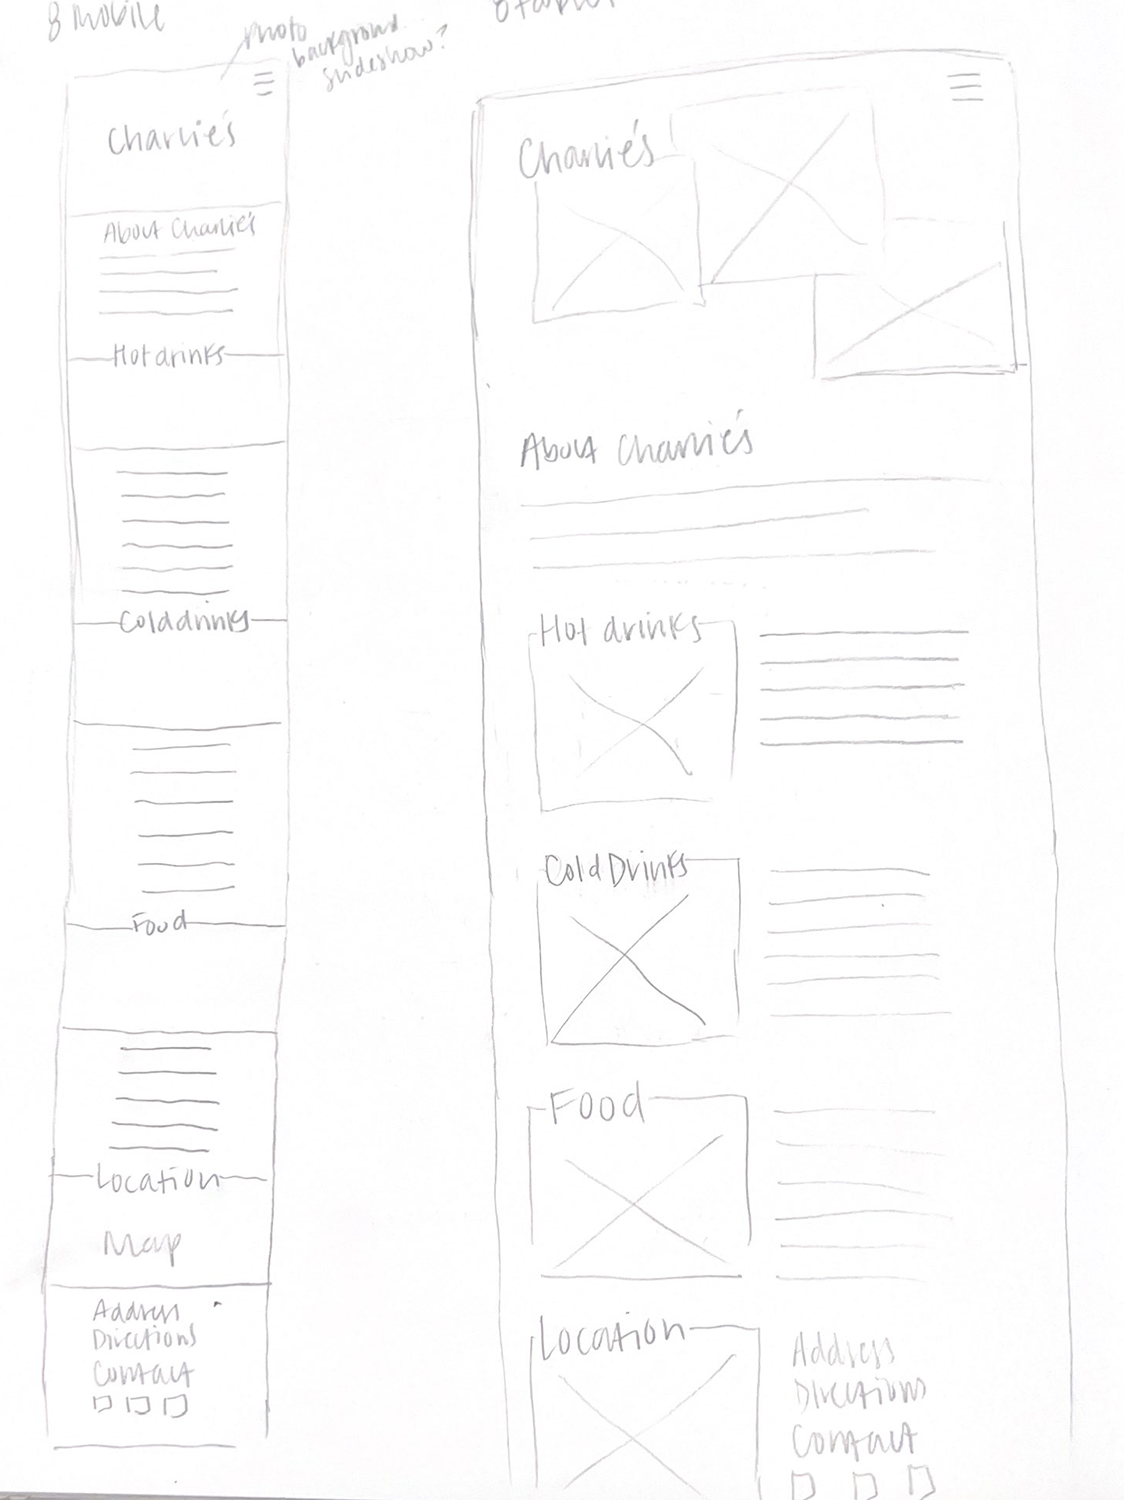 8 mobile
photo
background
slideshow?
Charlie's
About Charlie's
Hot drinks
Cold drinks
Food
Location
Map
Address
Directions
Contact
8 tablet
Charlie's
About Charlie's
Hot drinks
Cold Drinks
Food
Location
Address
Directions
Contact